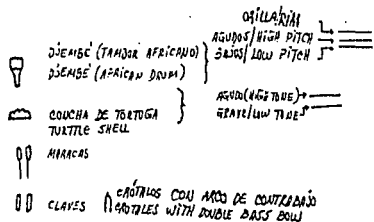 ORILLA/RIM
AGUDOS/HIGH PITCH
DJEMBÉ (TAMBOR AFRICANO)
DJEMBÉ (AFRICAN DRUM)
/LOW PITCH
CONCHA DE TORTUGA
TURTLE SHELL
AGUDO(HIGH TONE)
GRAVE/LOW TONE
MARACAS
CLAVES
CRÓTALOS CON ARCO DE CONTRABAJO
CROTALES WITH DOUBLE BASS BOW